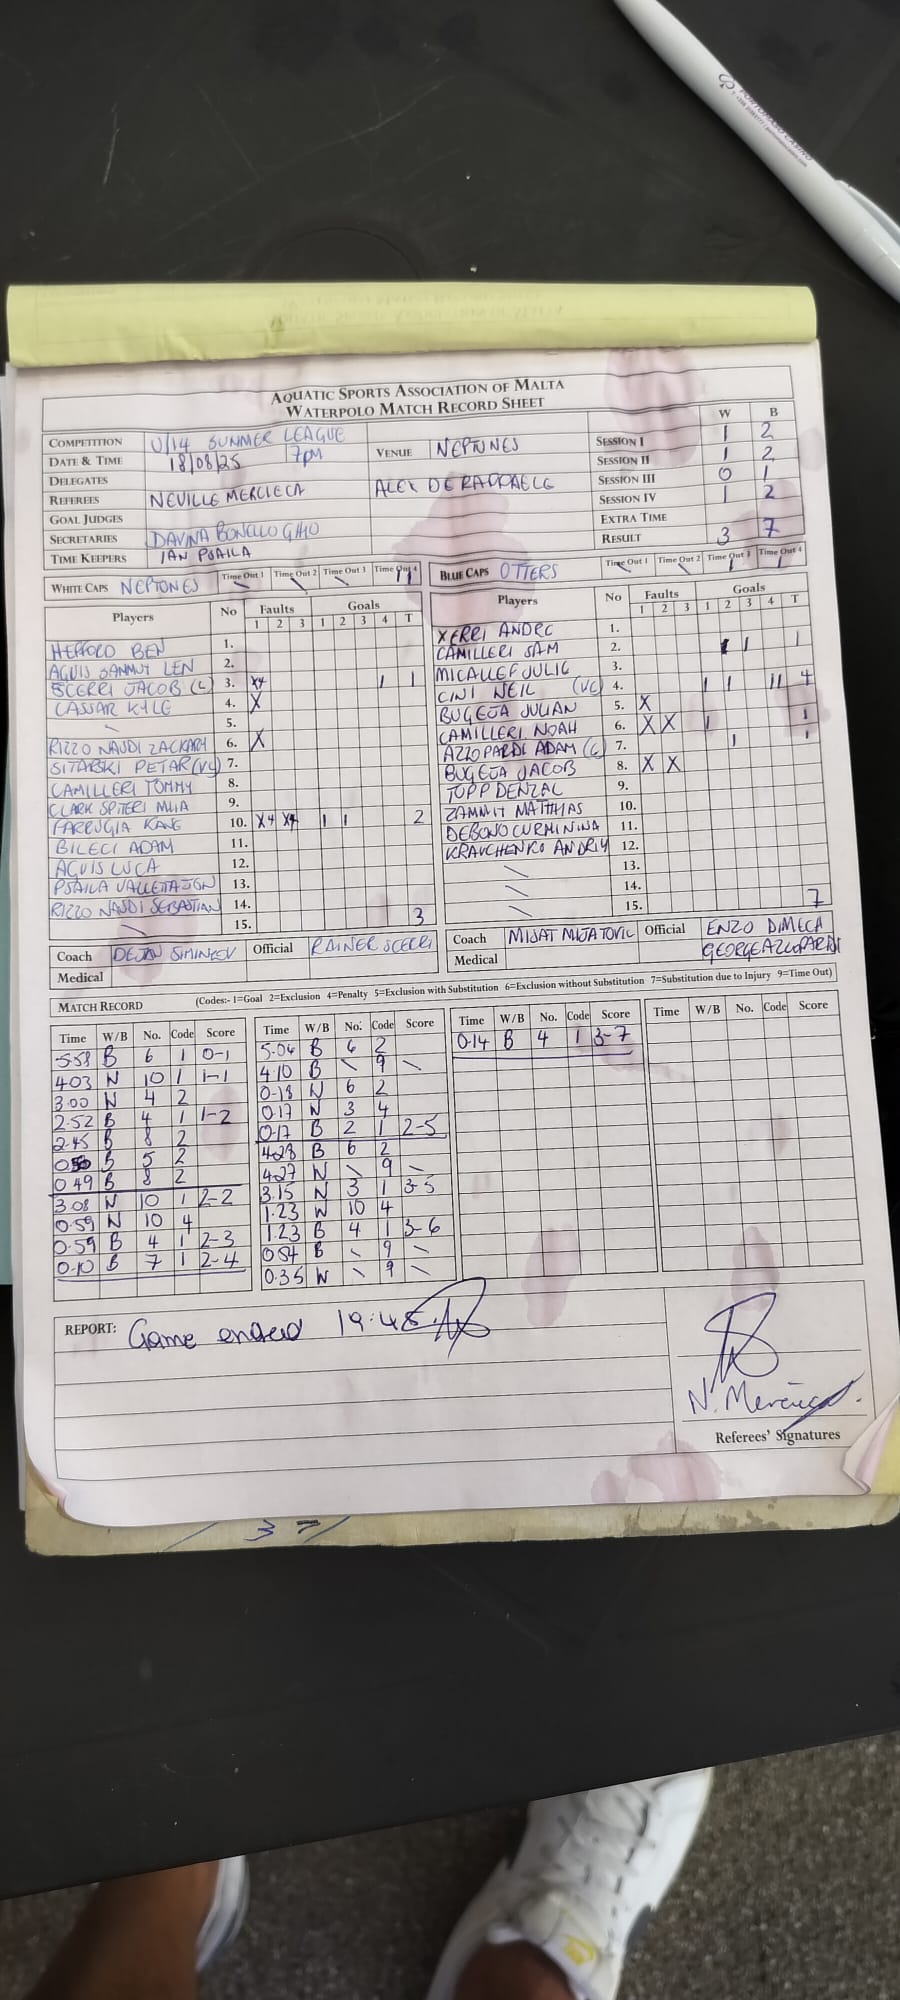 AQUATIC SPORTS ASSOCIATION OF MALTA
WATERPOLO MATCH RECORD SHEET
W B
COMPETITION U/14 SUMMER LEAGUE SESSION I 1 2
DATE & TIME 18/08/25 7pm VENUE NEPTUNES SESSION II 1 2
DELEGATES SESSION III 0 1
REFEREES NEVILLE MERCIECA ALEX DE RAFFAELE SESSION IV 1 2
GOAL JUDGES EXTRA TIME
SECRETARIES DAVINA BONELLO GHIO RESULT 3 7
TIME KEEPERS IAN PSAILA
WHITE CAPS NEPTUNES Time Out 1 Time Out 2 Time Out 3 Time Out 4
Players No Faults Goals
1 2 3 1 2 3 4 T
HEFFORD BEN 1.
AGUIS SAMMUT LEN 2.
SCERRI JACOB (C) 3. X4 1 1
CASSAR KYLE 4. X
\ 5.
RIZZO NAUDI ZACKARY 6. X
SITARSKI PETAR (VC) 7.
CAMILLERI TOMMY 8.
CLARK SPITERI MIJA 9.
FARRUGIA KANE 10. X4 X4 1 1 2
BILECI ADAM 11.
AGUIS LUCA 12.
PSAILA VALLETTA ZION 13.
RIZZO NAUDI SEBASTIAN 14.
\ 15. 3
Coach DEJAN SIMINKEV Official RAINER SCERRI
Medical
BLUE CAPS OTTERS Time Out 1 Time Out 2 Time Out 3 Time Out 4
Players No Faults Goals
1 2 3 1 2 3 4 T
XERRI ANDRE 1.
CAMILLERI SAM 2. 1 1
MICALLEF JULIG 3.
CINI NEIL (VC) 4. 1 1 11 4
BUGEJA JULIAN 5. X
CAMILLERI NOAH 6. X X 1 1
AZZOPARDI ADAM (C) 7. 1 1
BUGEJA JACOB 8. X X
TOPP DENZAL 9.
ZAMMIT MATTHIAS 10.
DEBONO CURMI NINA 11.
KRAVCHENKO ANDRIY 12.
\ 13.
\ 14.
\ 15. 7
Coach MIJAT MIJATOVIC Official ENZO DIMECH
Medical GEORGE AZZOPARDI
MATCH RECORD (Codes:- 1=Goal 2=Exclusion 4=Penalty 5=Exclusion with Substitution 6=Exclusion without Substitution 7=Substitution due to Injury 9=Time Out)
Time W/B No. Code Score
5.58 B 6 1 0-1
4.03 N 10 1 1-1
3.00 N 4 2
2.52 B 4 1 1-2
2.45 B 8 2
B 5 2
0.49 B 8 2
3.08 N 10 1 2-2
0.59 N 10 4
0.59 B 4 1 2-3
0.10 B 7 1 2-4
Time W/B No. Code Score
5.04 B 6 2
4.10 B \ 9 \
0.18 N 6 2
0.17 N 3 4
0.17 B 2 1 2-5
4.28 B 6 2
4.27 N \ 9 \
3.15 N 3 1 3-5
1.23 W 10 4
1.23 B 4 1 3-6
0.54 B \ 9 \
0.35 W \ 9 \
Time W/B No. Code Score
0.14 B 4 1 3-7
Time W/B No. Code Score
REPORT: Game ended 19:45
N. Mercieca
Referees' Signatures
3 7/